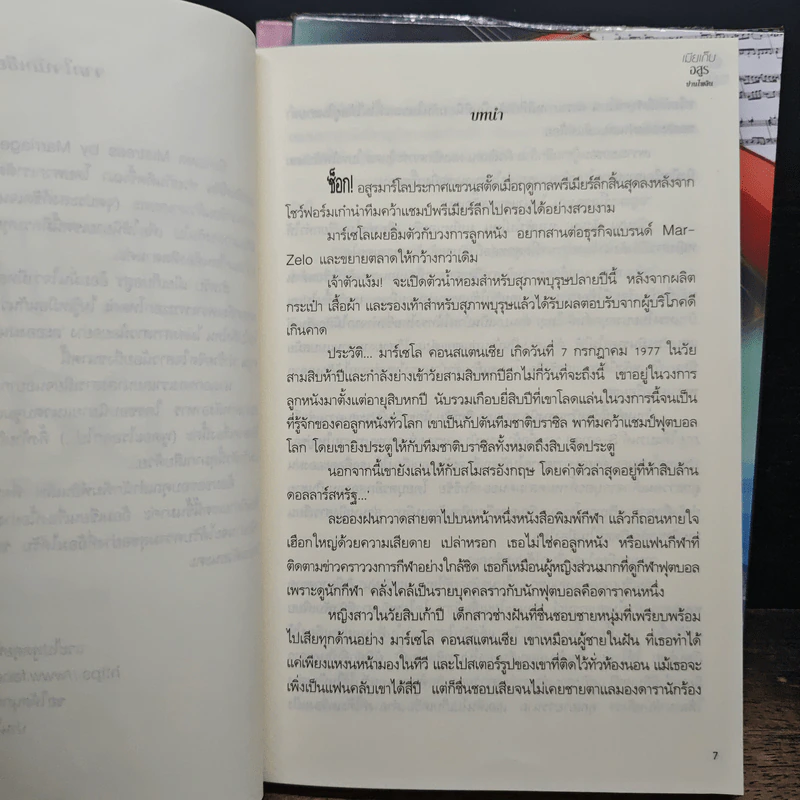 เมียเก็บ
อสูร
ปานไพลิน
บทนำ
ช็อก! อสูรมาร์โลประกาศแขวนสตั๊ดเมื่อฤดูกาลพรีเมียร์ลีกสิ้นสุดลงหลังจาก
โชว์ฟอร์มเก๋านำทีมคว้าแชมป์พรีเมียร์ลีกไปครองได้อย่างสวยงาม
มาร์เซโลเผยอิ่มตัวกับวงการลูกหนัง อยากสานต่อธุรกิจแบรนด์ Mar-
Zelo และขยายตลาดให้กว้างกว่าเดิม
เจ้าตัวแง้ม! จะเปิดตัวน้ำหอมสำหรับสุภาพบุรุษปลายปีนี้ หลังจากผลิต
กระเป๋า เสื้อผ้า และรองเท้าสำหรับสุภาพบุรุษแล้วได้รับผลตอบรับจากผู้บริโภคดี
เกินคาด
ประวัติ... มาร์เซโล คอนสแตนเซีย เกิดวันที่ 7 กรกฎาคม 1977 ในวัย
สามสิบห้าปีและกำลังย่างเข้าวัยสามสิบหกปีอีกไม่กี่วันที่จะถึงนี้ เขาอยู่ในวงการ
ลูกหนังมาตั้งแต่อายุสิบหกปี นับรวมเกือบยี่สิบปีที่เขาโลดแล่นในวงการนี้จนเป็น
ที่รู้จักของคอลูกหนังทั่วโลก เขาเป็นกัปตันทีมชาติบราซิล พาทีมคว้าแชมป์ฟุตบอล
โลก โดยเขายิงประตูให้กับทีมชาติบราซิลทั้งหมดถึงสิบเจ็ดประตู
นอกจากนี้เขายังเล่นให้กับสโมสรอังกฤษ โดยค่าตัวล่าสุดอยู่ที่ห้าสิบล้าน
ดอลลาร์สหรัฐ...'
ละอองฝนกวาดสายตาไปบนหน้าหนึ่งหนังสือพิมพ์กีฬา แล้วก็ถอนหายใจ
เฮือกใหญ่ด้วยความเสียดาย เปล่าหรอก เธอไม่ใช่คอลูกหนัง หรือแฟนกีฬาที่
ติดตามข่าวคราววงการกีฬาอย่างใกล้ชิด เธอก็เหมือนผู้หญิงส่วนมากที่ดูกีฬาฟุตบอล
เพราะดูนักกีฬา คลั่งไคล้เป็นรายบุคคลราวกับนักฟุตบอลคือดาราคนหนึ่ง
หญิงสาวในวัยสิบเก้าปี เด็กสาวช่างฝันที่ชื่นชอบชายหนุ่มที่เพรียบพร้อม
ไปเสียทุกด้านอย่าง มาร์เซโล คอนสแตนเซีย เขาเหมือนผู้ชายในฝัน ที่เธอทำได้
แค่เพียงแหงนหน้ามองในทีวี และโปสเตอร์รูปของเขาที่ติดไว้ทั่วห้องนอน แม้เธอจะ
เพิ่งเป็นแฟนคลับเขาได้สี่ปี แต่ก็ชื่นชอบเสียจนไม่เคยชายตาแลมองดารานักร้อง
7